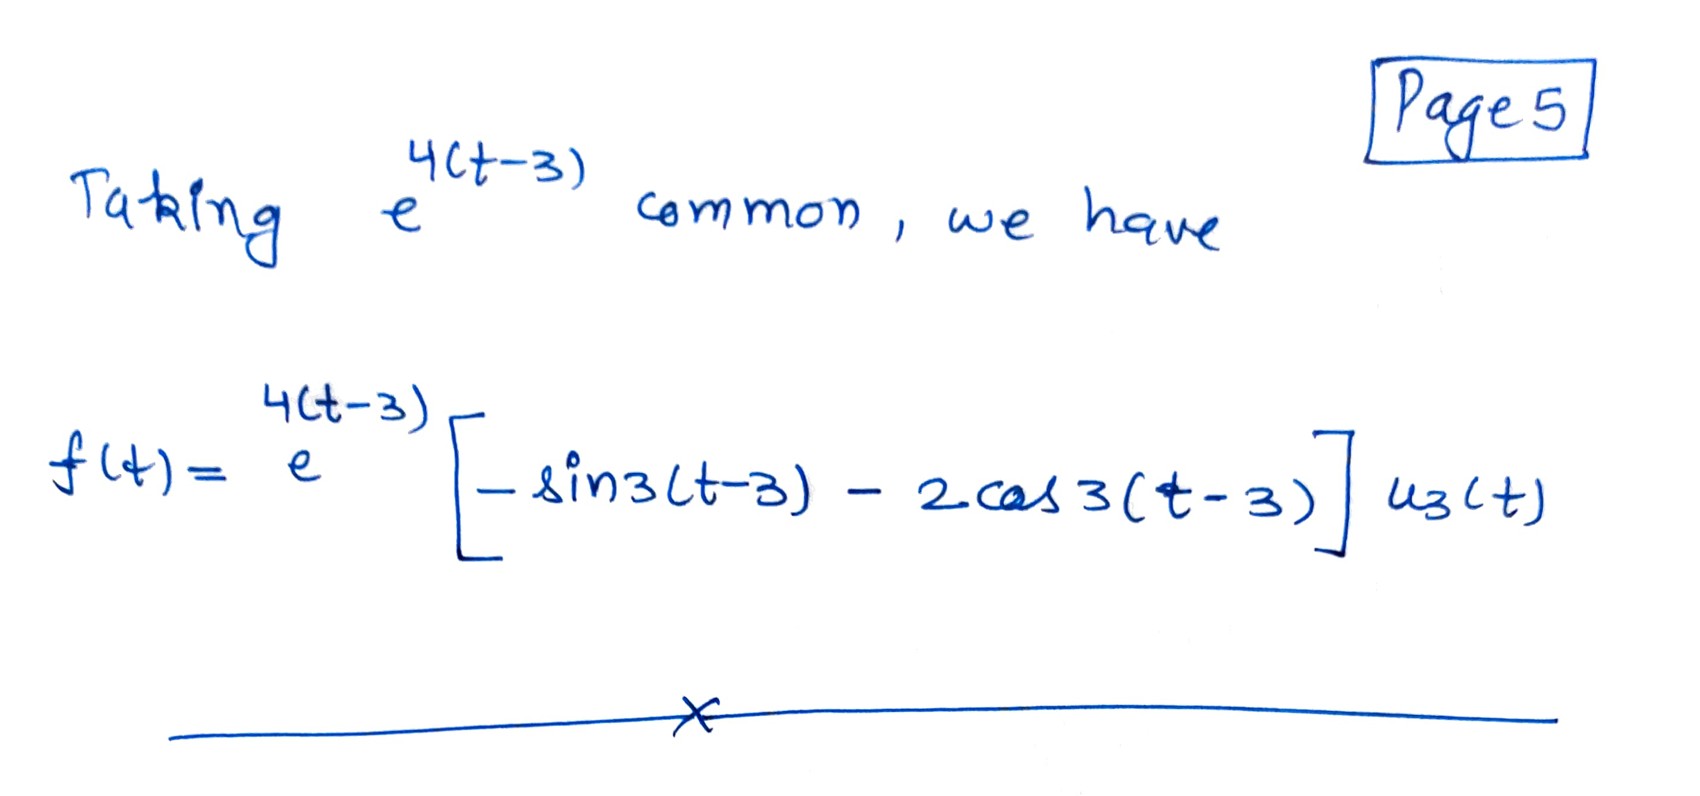 Page 5
Taking e^{4(t-3)} common, we have
f(t) = e^{4(t-3)} [- sin3(t-3) - 2cos3(t-3)] u_3(t)